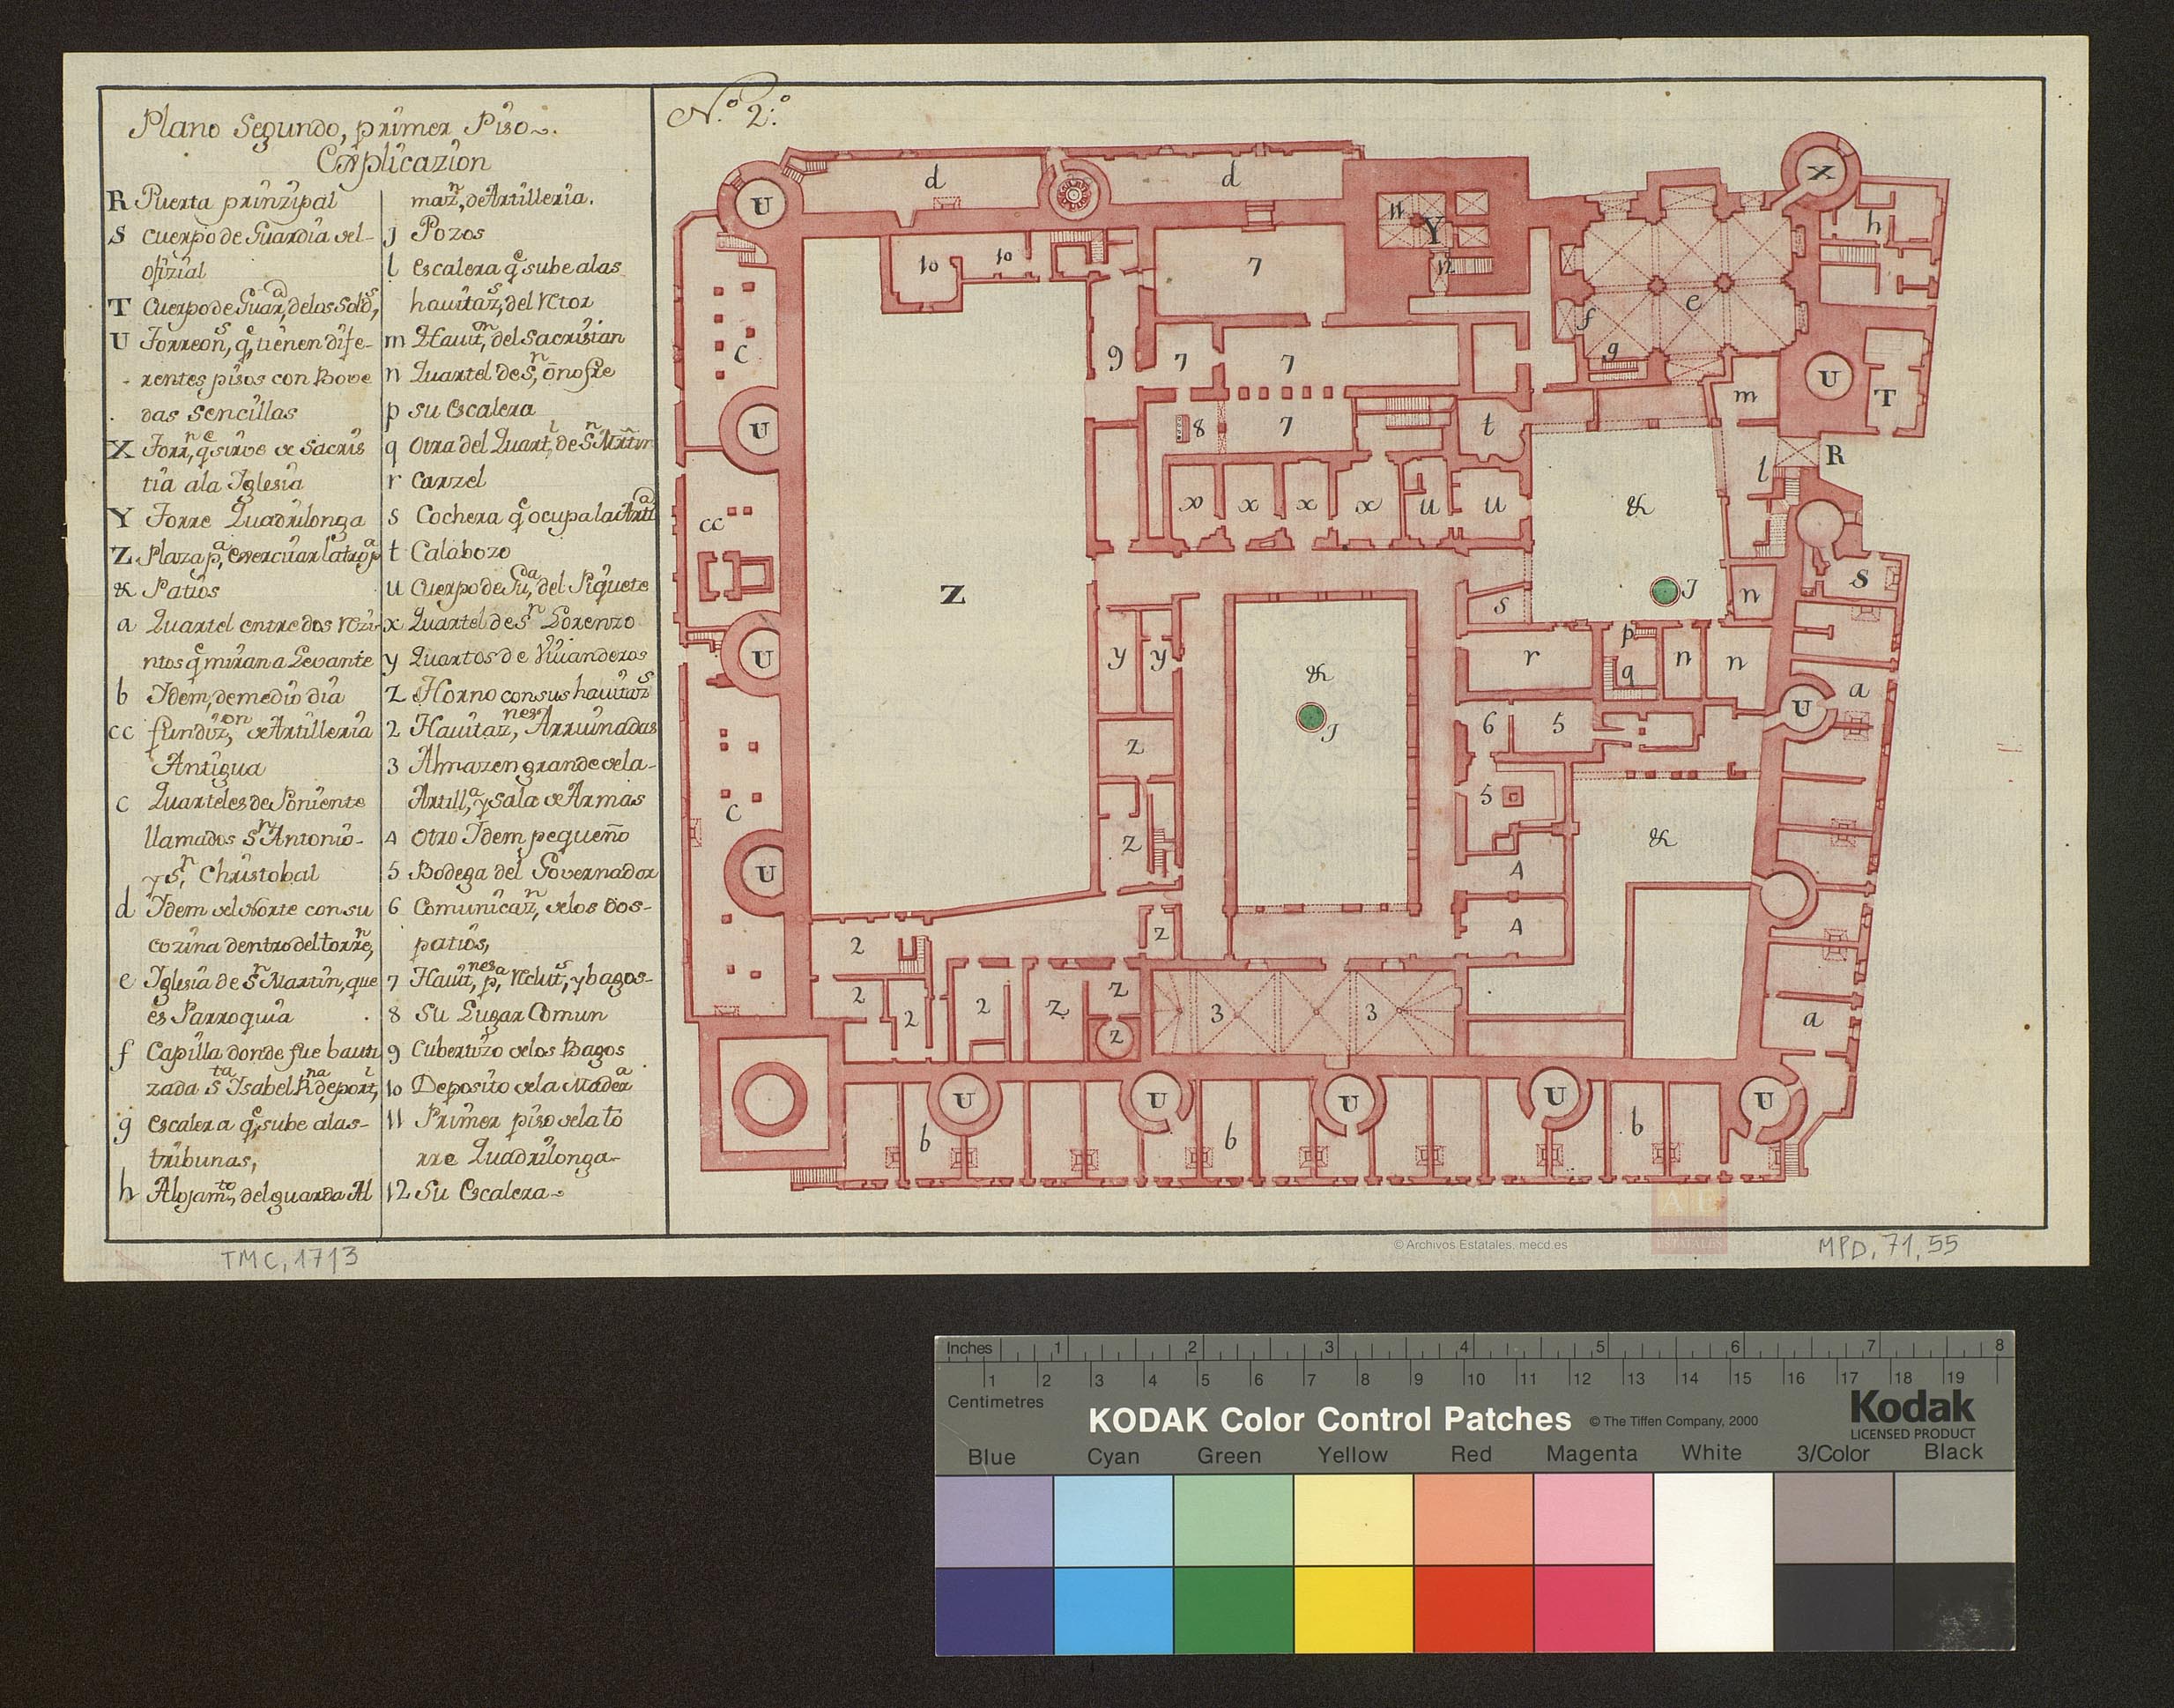 Plano Segundo, primer Piso.
Explicazion
R Puerta prinzipal
S Cuerpo de Guardia del
ofizial
T Cuerpo de Guarᵈ, de los Soldˢ,
U Torreonˢ, qᵉ, tienen dife-
rentes pisos con Bove
das Sencillas
X Torrⁿ, qᵉ sirve de Sacris
tia a la Iglesia
Y Torre Quadrilonga
Z Plaza pᵃ, exercitar la tropᵃ
& Patios
a Quartel entre dos rezi-
ntos qᵉ miran a Levante
b Idem, de medio dia
cc fundizⁱᵒⁿ, de Artilleria
Antigua
c Quarteles de Poniente
llamados Sⁿ Antonio-
y Sⁿ, Christobal
d Idem del Norte con su
cozina dentro del torrⁿ,
e Iglesia de Sⁿ Martin, que
es Parroquia
f Capilla donde fue bauti
zada Sᵗᵃ Isabel Rⁿᵃ de portˡ,
g escalera qᵉ, sube a las-
tribunas,
h Alojamᵗᵒ, del guarda Al
mazⁿ, de Artilleria.
J Pozos
l escalera qᵉ sube a las
havitazˢ, del retor
m Havitⁿ, del Sacristan
n Quartel de Sⁿ, onofre
p su escalera
q otra del Quartˡ, de Sⁿ Mrtin
r carzel
s Cochera qᵉ ocupa la Artᵃ
t Calabozo
u Cuerpo de Guᵈᵃ, del Piquete
x Quartel de Sⁿ Lorenzo
y Quartos de Vivanderos
z Horno con sus havitazˢ
2 Havitazⁿᵉˢ, Arruinadas
3 Almazen grande de la-
Artillᵃ, y Sala de Armas
4 otro Idem pequeño
5 Bodega del Governador
6 Comunicazⁿ, de los dos-
patios,
7 Havitⁿᵉˢ, pᵃ, Reclutˢ, y bagos-
8 Su Lugar Comun
9 Cubertizo de los Bagos
10 Deposito de la Maderᵃ
11 Primer piso de la to
rre Quadrilonga-
12 Su Escalera-
N.º 2.º
U
d
d
11
Y
12
X
h
10
10
7
e
f
g
c
9
7
7
U
8
7
t
m
U
T
R
l
cc
x
x
x
x
u
u
&
Z
J
s
n
S
U
y
y
&
J
r
p
q
n
n
a
U
z
6
5
c
z
5
&
U
4
4
2
z
2
2
2
z
z
z
3
3
a
U
U
U
U
U
b
b
b
TMC, 1713
© Archivos Estatales, mecd.es
AE
ESTATALES
MPD, 71, 55
Inches 1 2 3 4 5 6 7 8
1 2 3 4 5 6 7 8 9 10 11 12 13 14 15 16 17 18 19
Centimetres
KODAK Color Control Patches © The Tiffen Company, 2000
Kodak
LICENSED PRODUCT
Blue Cyan Green Yellow Red Magenta White 3/Color Black